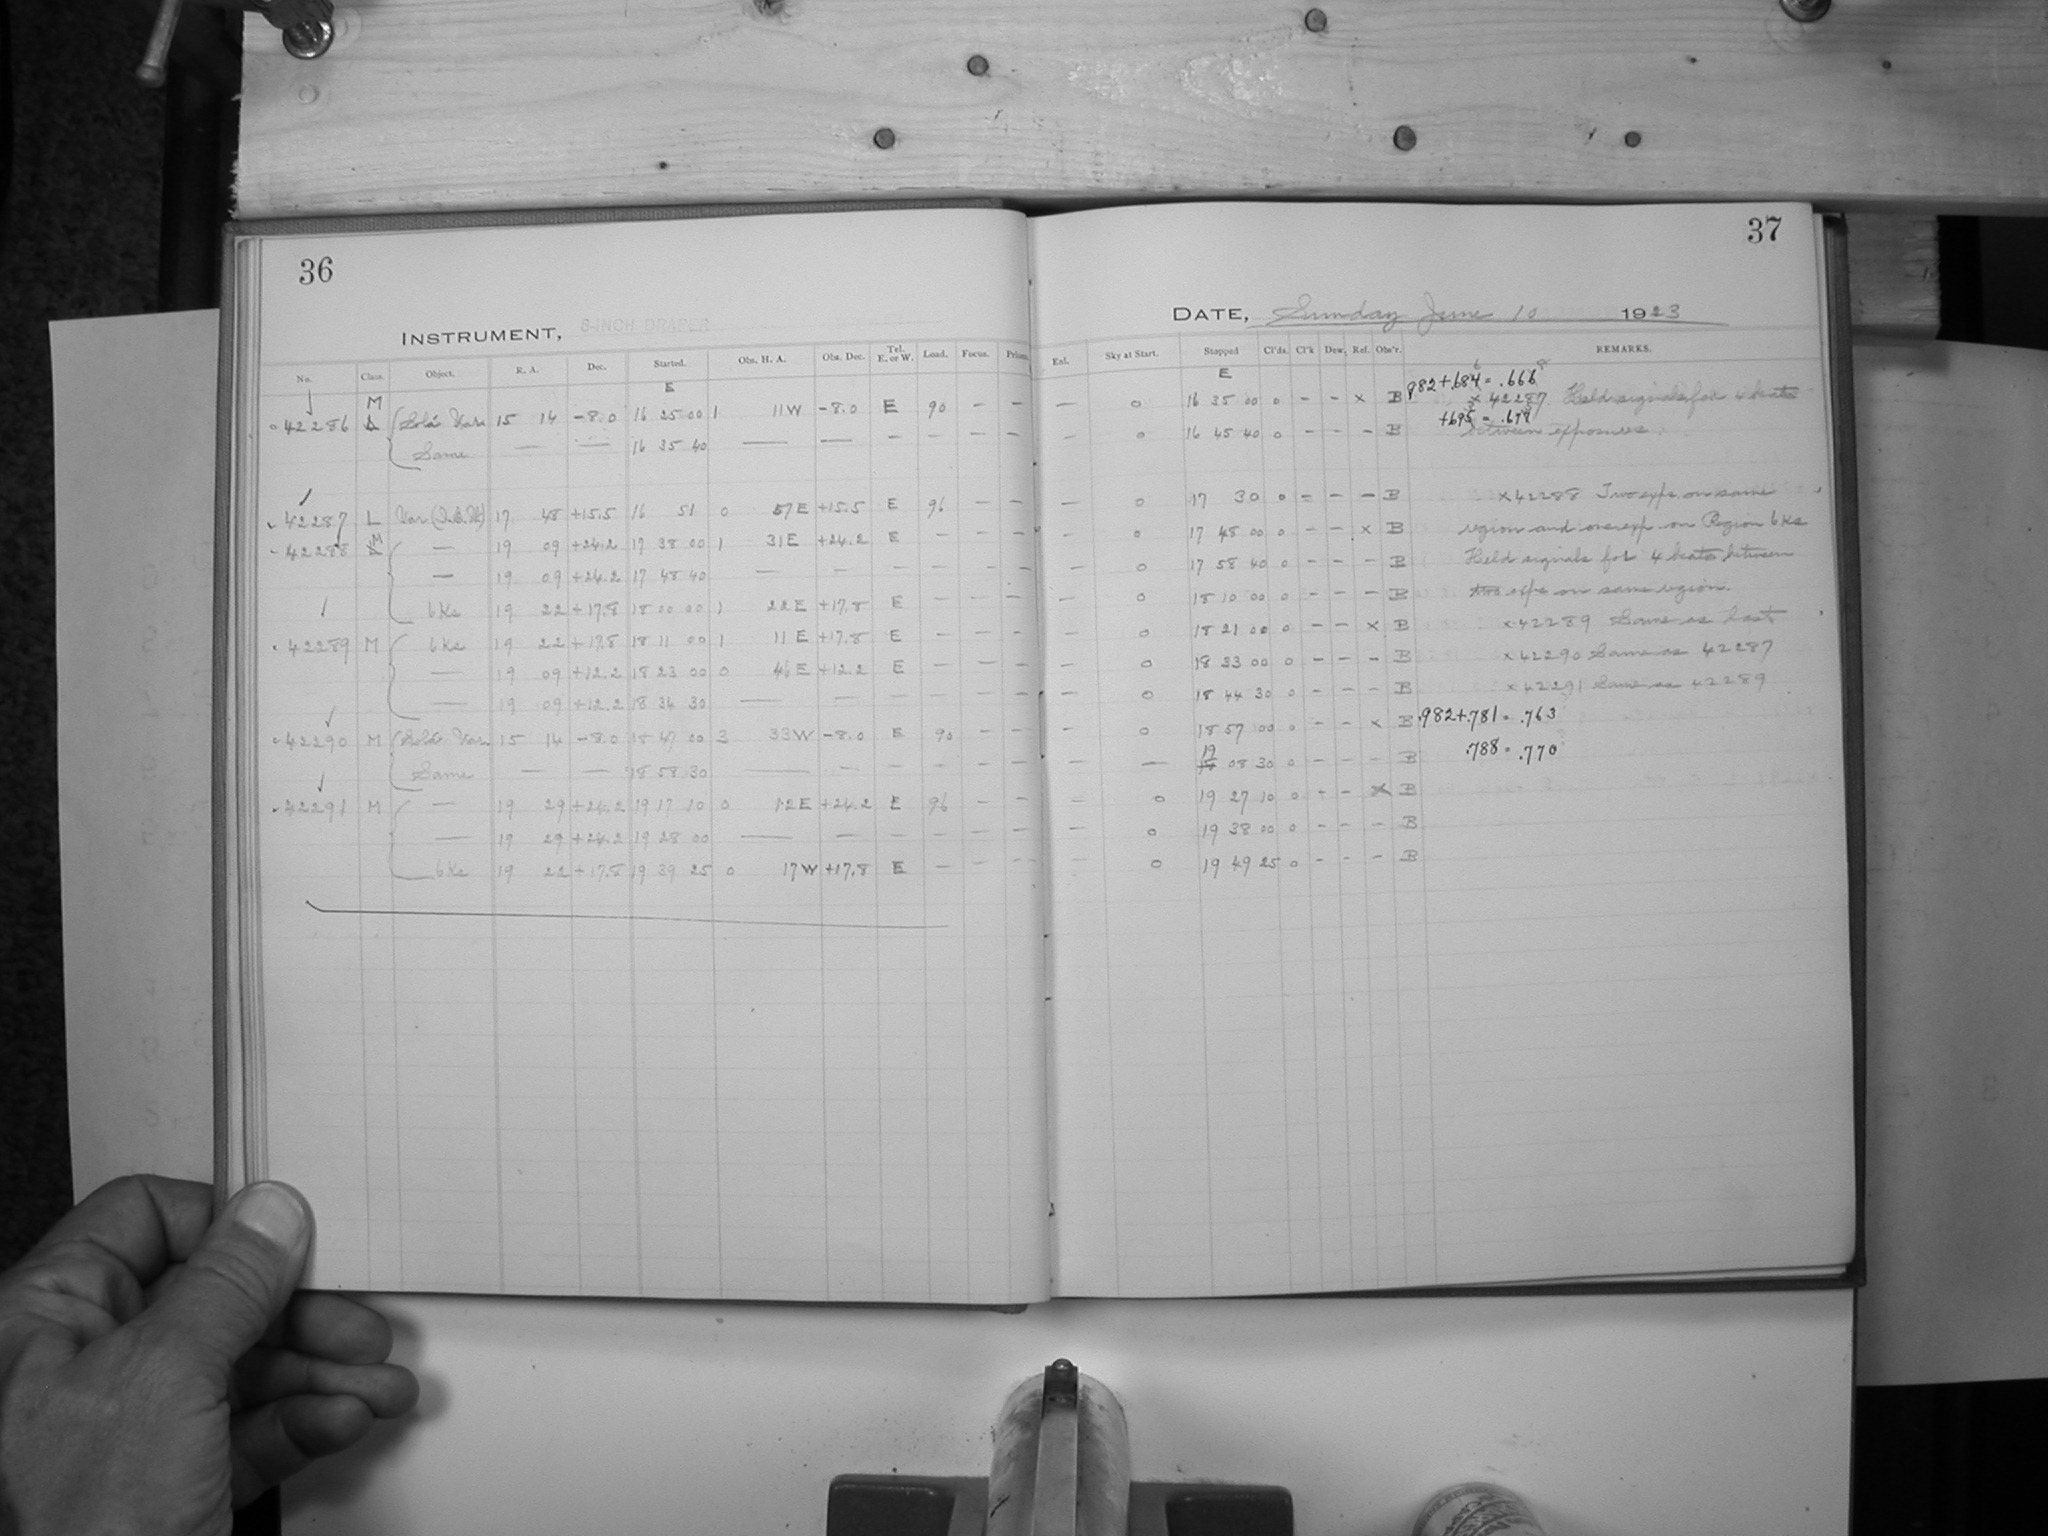 36
INSTRUMENT, 8-INCH DRAPER
No. Class. Object. R. A. Dec. Started. Obs. H. A. Obs. Dec. Tel. E. or W. Load. Focus.
E
M
42286 Same Var 15 14 -8.0 16 25 00 1 11 W -8.0 E 90 - -
Same — — 16 35 40 — — - - - -
42287 L Var 17 48 +15.5 16 51 0 57 E +15.5 E 96 - -
42288 M — 19 09 +24.2 17 38 00 1 31 E +24.2 E - - -
— 19 09 +24.2 17 48 40 — - - - - -
6Ks 19 22 +17.8 18 00 00 1 22 E +17.8 E - - -
42289 M 6Ks 19 22 +17.8 18 11 00 1 11 E +17.8 E - - -
— 19 09 +12.2 18 23 00 0 46 E +12.2 E - - -
— 19 09 +12.2 18 34 30 — - - - - -
42290 M Var 15 14 -8.0 18 47 00 3 33 W -8.0 E 90 - -
Same — — 18 58 30 — - - - - -
42291 M — 19 29 +24.2 19 17 10 0 12 E +24.2 E 96 - -
— 19 29 +24.2 19 28 00 — - - - - -
6Ks 19 22 +17.8 19 39 25 0 17 W +17.8 E - - -
37
DATE, Sunday June 10 1923
Exl. Sky at Start. Stopped Cl'ds. Cl'k Dew. Ref. Obs'r. REMARKS.
E
— 0 16 35 00 0 - - x B .982+.684 = .666
x 42287 Held signals for 4 beats
+695 = .678
- 0 16 45 40 0 - - - B between exposures.
— 0 17 30 0 - - - B x42288 Two exps. on same
- 0 17 48 00 0 - - x B region and one exp. on Region 6Ks
- 0 17 58 40 0 - - - B Held signals for 4 beats between
- 0 18 10 00 0 - - - B two exps on same region.
- 0 18 21 00 0 - - x B x42289 Same as last
- 0 18 33 00 0 - - - B x42290 Same as 42287
- 0 18 44 30 0 - - - B x42291 Same as 42289
- 0 18 57 00 0 - - x B .982+.781 = .763
— — 19 08 30 0 - - - B .788 = .770
- 0 19 27 10 0 - - x B
- 0 19 38 00 0 - - - B
- 0 19 49 25 0 - - - B